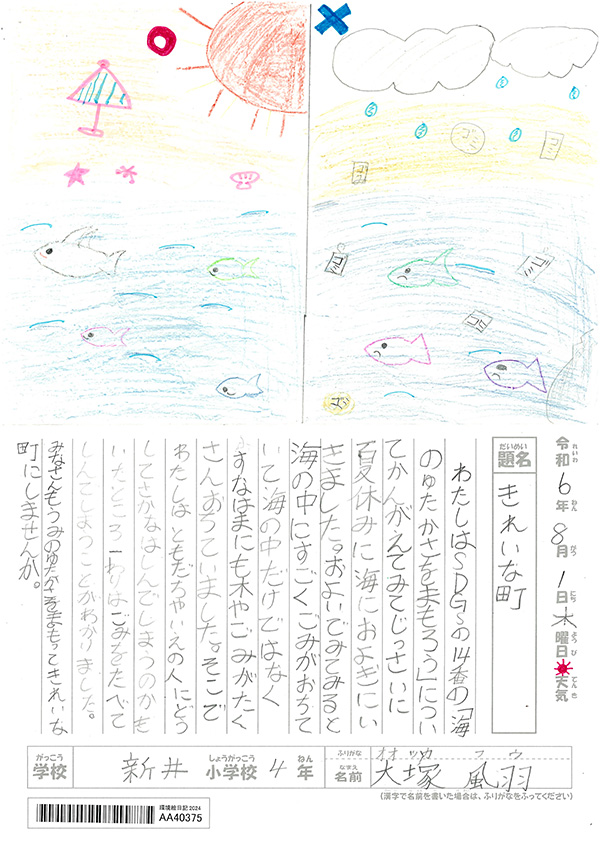 ゴミ
ゴミ
ゴミ
ゴミ
ゴミ
ゴミ
ゴミ
令和6年8月1日木曜日 天気
れいわ ねん がつ にち ようび てんき
だいめい
題名
きれいな町
わたしはSDGsの14番の「海
のゆたかさをまもろう」につい
てかんがえてみてじっさいに
夏休みに海におよぎにい
きました。およいでみてみると
海の中にすごくごみがおちて
いて海の中だけではなく
すなはまにも木やごみがたく
さんおちていました。そこで
わたしはともだちやいえの人にどう
してさかなはしんでしまうのかをき
いたところ一わりはごみをたべて
しんでしまうことがわかりました。
みなさんもうみのゆたかさをまもってきれいな
町にしませんか。
がっこう しょうがっこう ねん
学校 新井 小学校 4年
ふりがな オオツカ フウ
なまえ
名前 大塚 風羽
(漢字で名前を書いた場合は、ふりがなをふってください)
環境絵日記2024
AA40375